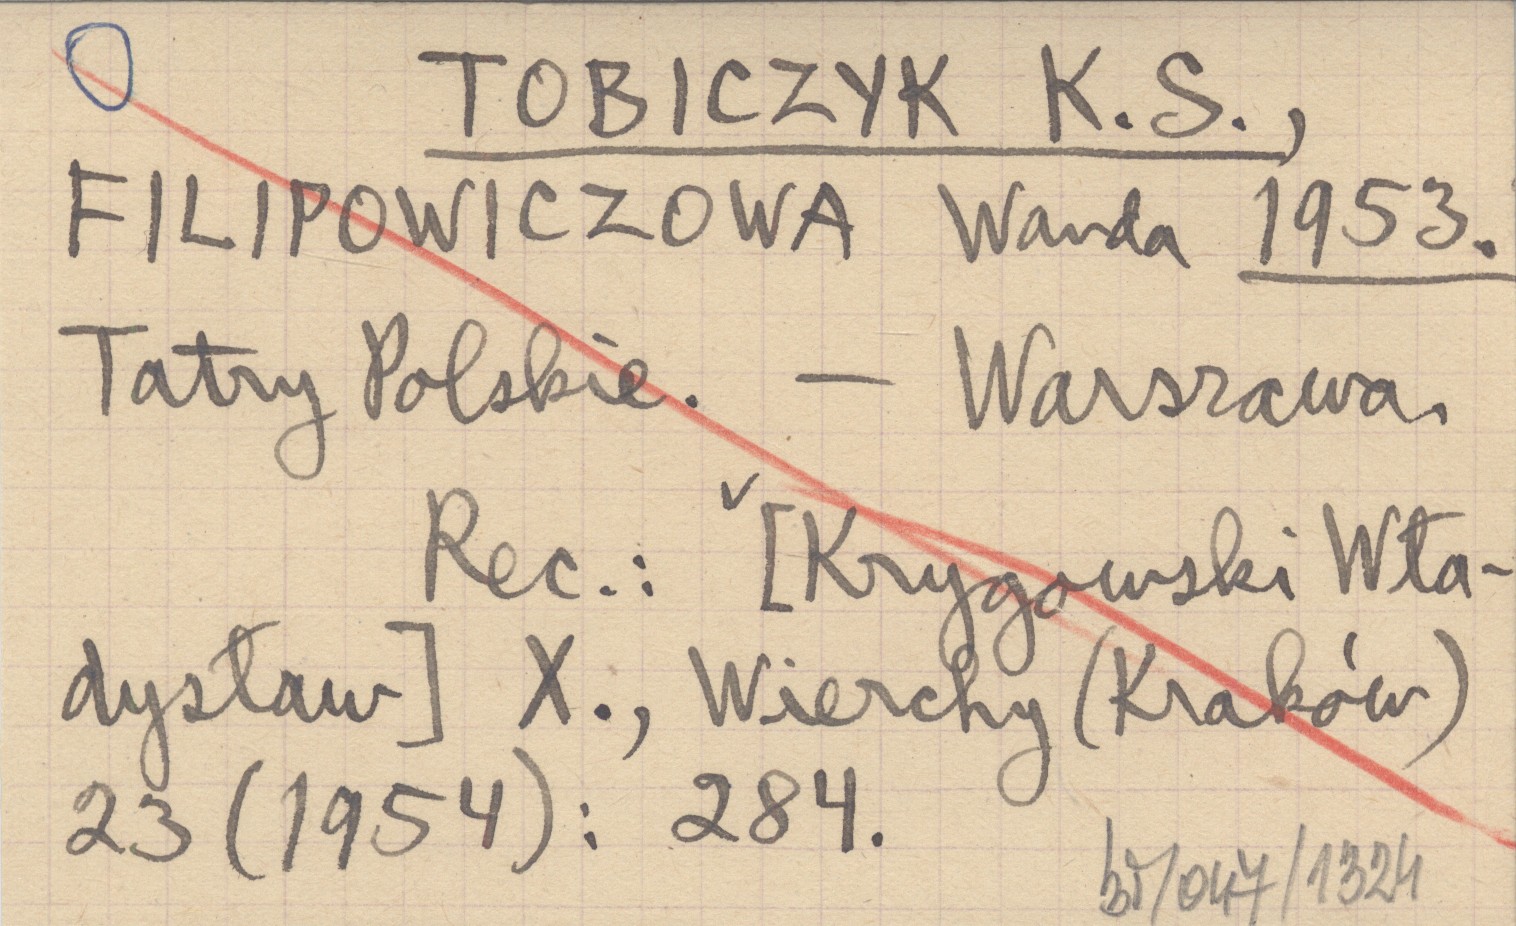 TOBICZYK K.S.,
FILIPOWICZOWA Wanda 1953.
Tatry Polskie. — Warszawa.
Rec.: [Krygowski Wła-
dysław] X., Wierchy (Kraków)
23 (1954): 284.
/047/1324